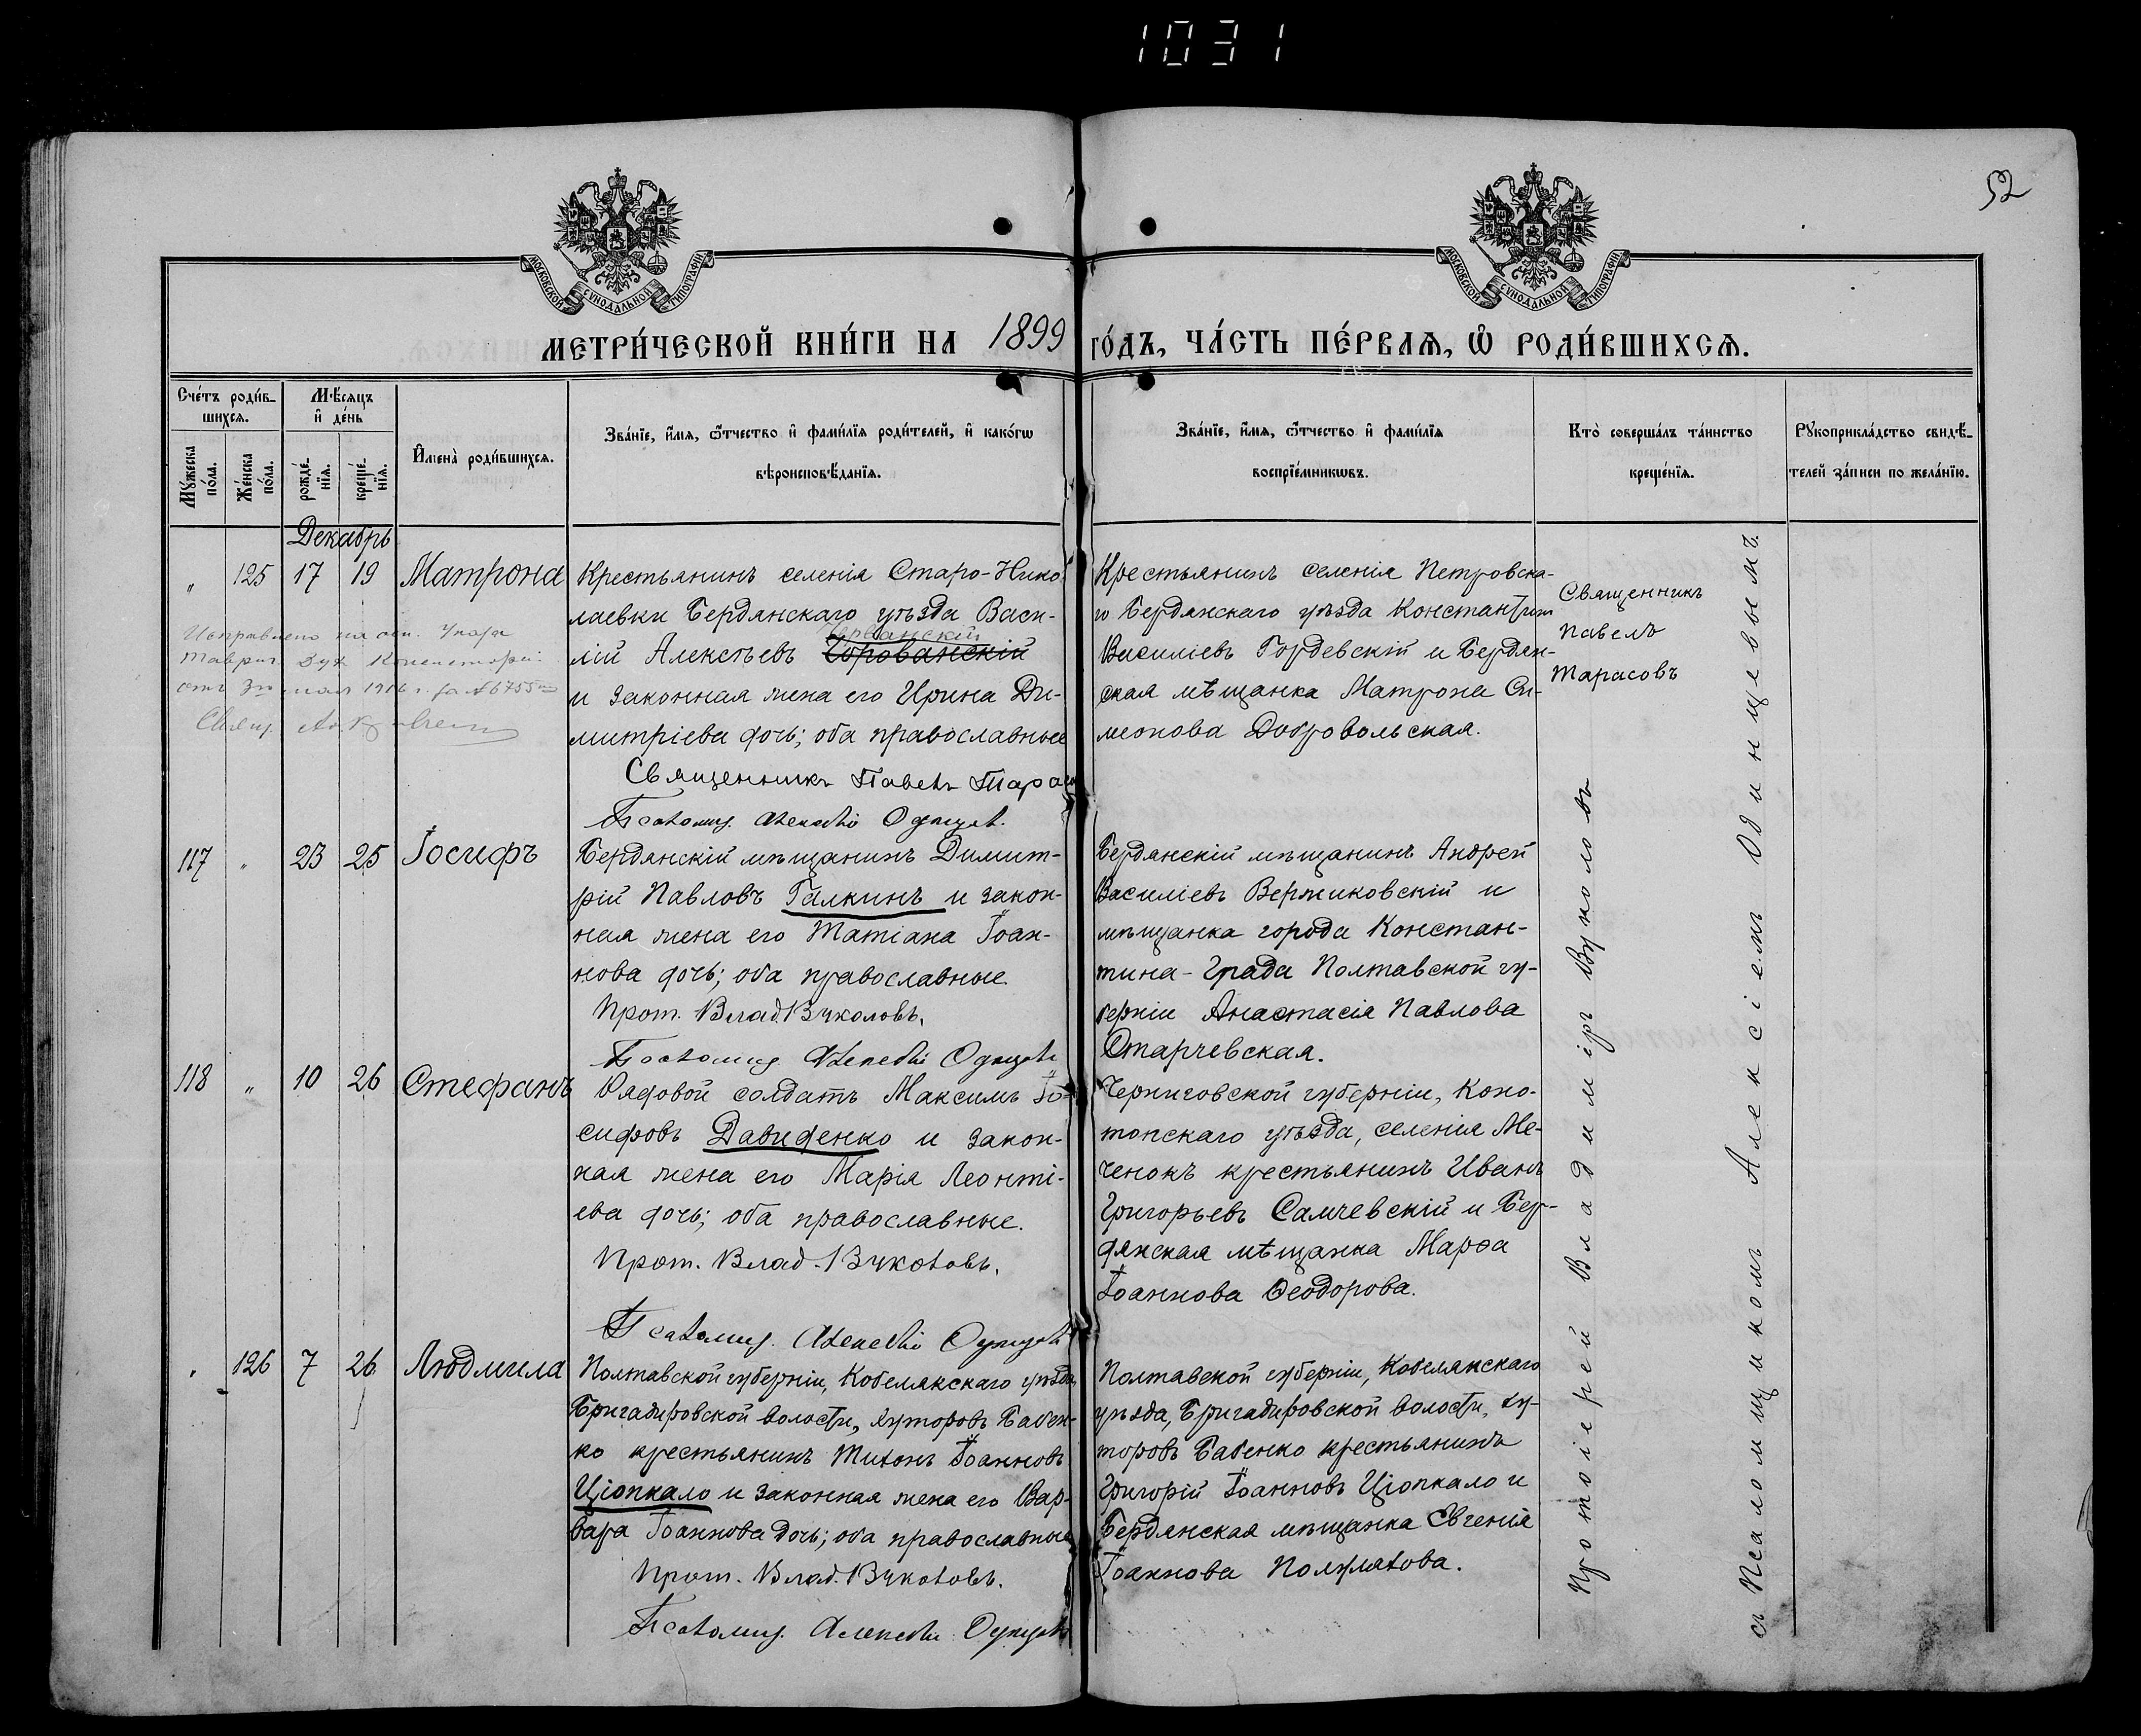 1031
52
МОСКОВСКОЙ СУНОДАЛЬНОЙ ТИПОГРАФІИ
МОСКОВСКОЙ СУНОДАЛЬНОЙ ТИПОГРАФІИ
МЕТРИ́ЧЕСКОЙ КНИ́ГИ НА 1899 ГО́ДЪ, ЧА́СТЬ ПЕ́РВАѦ, Ѡ РОДИ́ВШИХСѦ.
Сче́тъ роди́в-
шихсѧ.
Мꙋ́жеска по́ла.
Же́нска по́ла.
Мѣ́сѧцъ
и҆ де́нь
рожде́-
нїѧ.
креще́-
нїѧ.
И҆мена̀ роди́вшихсѧ.
Зва́нїе, и҆́мѧ, ѻ҆́тчество и҆ фами́лїѧ роди́телей, и҆ како́гѡ
вѣроисповѣ́данїѧ.
Зва́нїе, и҆́мѧ, ѻ҆́тчество и҆ фами́лїѧ
воспрїе́мникѡвъ.
Кто̀ соверша́лъ та́инство
креще́нїѧ.
Рꙋкоприкла́дство свидѣ́-
телей за́писи по жела́нїю.
Декабрь
" 125 17 19 Матрона
Крестьянинъ селенія Старо-Нико
лаевки Бердянскаго уѣзда Васи-
Червански
лій Алексѣевъ Чорованскій
и законная жена его Ирина Ди-
митріева дочь; оба православные
Священникъ Павелъ Тарасо
Псаломщ. Алексѣй Одинцовъ
Исправлено на осн. Указа
Таврич. Дух. Консисторіи
отъ 3го мая 1916 г. за № 6755
Свящ.
Крестьянинъ селенія Петровска-
го Бердянскаго уѣзда Константинъ
Василіевъ Гордевскій и Бердян-
ская мѣщанка Матрона Си-
меонова Добровольская.
Священникъ
Павелъ
Тарасовъ
117 " 23 25 Іосифъ
Бердянскій мѣщанинъ Димит-
рій Павловъ Галкинъ и закон-
ная жена его Татіана Іоан-
нова дочь; оба православные.
Прот. Влад. Вуколовъ.
Псаломщ. Алексѣй Одинцовъ
Бердянскій мѣщанинъ Андрей
Василіевъ Вержиковскій и
мѣщанка города Констан-
тина-Града Полтавской гу-
берніи Анастасія Павлова
Старчевская.
118 " 10 26 Стефанъ
Рядовой солдатъ Максимъ Іо-
сифовъ Давиденко и закон-
ная жена его Марія Леонті-
ева дочь; оба православные.
Прот. Влад. Вуколовъ.
Псаломщ. Алексѣй Одинцовъ
Черниговской губерніи, Коно-
топскаго уѣзда, селенія Ме-
ченокъ крестьянинъ Иванъ
Григорьевъ Самчевскій и Бер-
дянская мѣщанка Марѳа
Іоаннова Ѳеодорова.
" 126 7 26 Людмила
Полтавской губерніи, Кобелякскаго уѣзда,
Бригадировской волости, хуторовъ Бабен-
ко крестьянинъ Тихонъ Іоанновъ
Ціопкало и законная жена его Вар-
вара Іоаннова дочь; оба православные
Прот. Влад. Вуколовъ.
Псаломщ. Алексѣй Одинцовъ
Полтавской губерніи, Кобелякскаго
уѣзда, Бригадировской волости, ху-
торовъ Бабенко крестьянинъ
Григорій Іоанновъ Ціопкало и
Бердянская мѣщанка Евгенія
Іоаннова Полулятова.
Протоіерей Владиміръ Вуколовъ
съ Псаломщикомъ Алексіемъ Одинцевымъ.